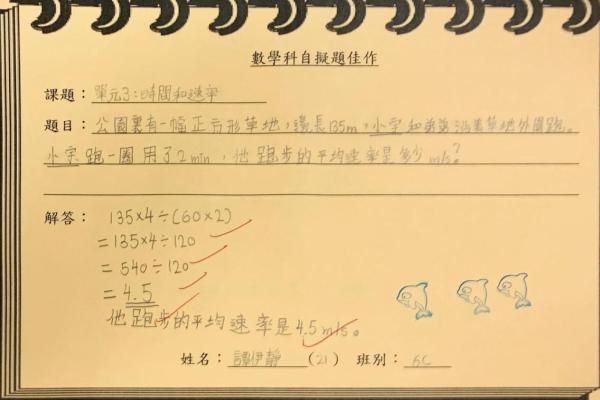 數學科自擬題佳作
課題：單元3：時間和速率
題目：公園裏有一幅正方形草地，邊長135m，小宝和弟弟沿着草地外圍跑。
小宝跑一圈用了2min，他跑步的平均速率是多少m/s？
解答：135×4÷(60×2)
=135×4÷120
=540÷120
=4.5
他跑步的平均速率是4.5m/s。
姓名：譚伊靜（21） 班別：6C